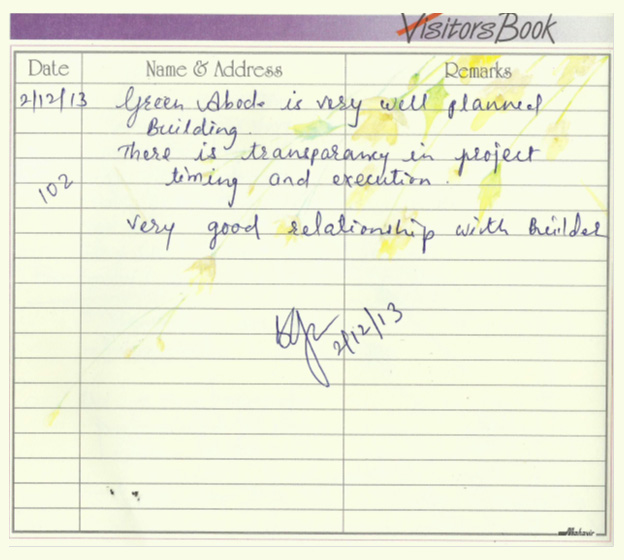 Visitors Book
Date Name & Address Remarks
2/12/13 Green Abode is very well planned
Building.
There is transparancy in project
102 timing and execution.
Very good relationship with Builder
2/12/13
Mahavir